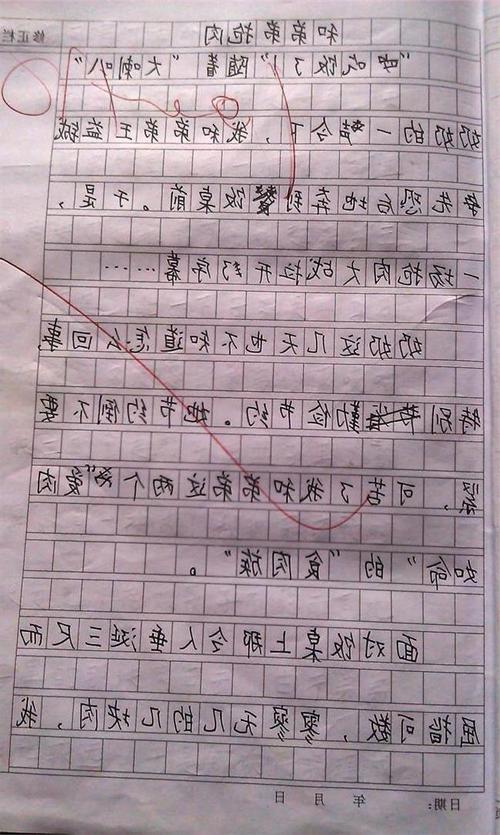 修正栏
和弟弟抢肉
吃饭了！”随着“大喇叭”
奶奶的一声令下，我和弟弟王益铖
争先恐后地奔到饭桌前。于是，
一场抢肉大战拉开了序幕……
奶奶这几天也不知道怎么回事
特别勤俭节约。她节约倒不要
紧，可苦了我和弟弟这两个“爱肉
如命”的“食肉族”。
面对饭桌上那令人垂涎三尺而
屈指可数，寥寥无几的几块肉，我
日期： 年 月 日